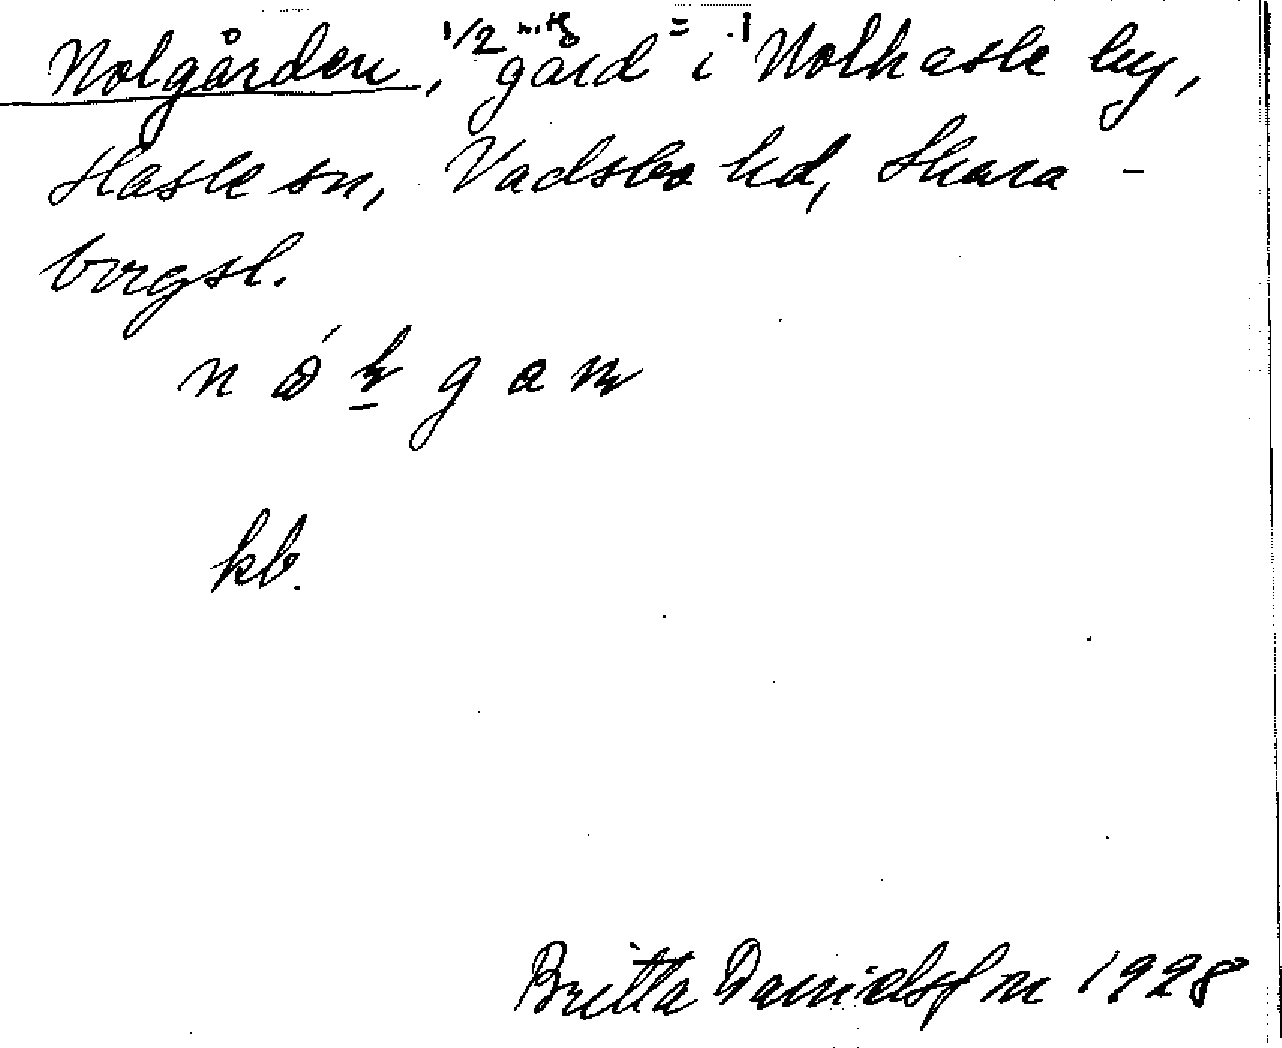 Nolgården, 1/2 mtg gård i Nolhasle by,
Hasle sn, Vadsbo hd, Skara-
borgsl.
kb.
Britta Danielsson 1928